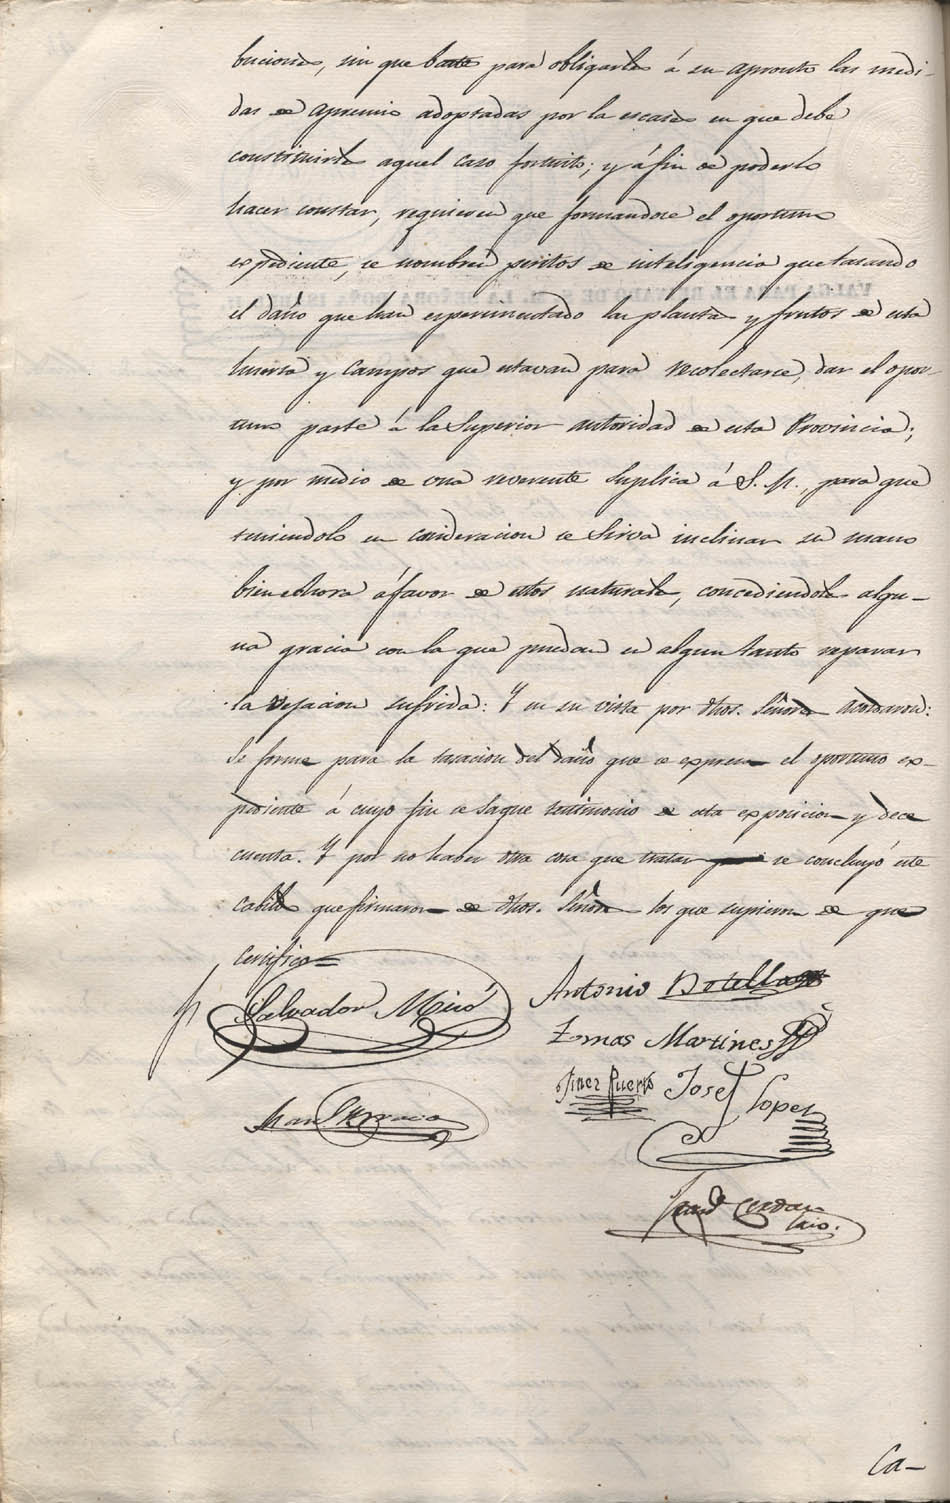 buciones, sin que baste para obligarles á su apronto las medi-
das de apremio adoptadas por la escases en que debe
constituirles aquel caso fortuito; y á fin de poderlo
hacer constar, requieren que formandose el oportuno
expediente, se nombren peritos de inteligencia que tasando
el daño que han esperimentado las plantas y frutos de esta
huerta y campos que estavan para recolectarce, dar el opor-
tuno parte á la Superior autoridad de esta Provincia;
y por medio de una reverente suplica á S. M., para que
teniendolo en concideracion se sirva inclinar su mano
bienechora á favor de estos naturales, concediendoles algu-
na gracia con la que puedan en algun tanto reparar
la vejacion sufrida: Y en su vista por dhos. Señores acordaron:
Se forme para la tasacion del daño que se expresa el oportuno ex-
pediente á cuyo fin se saque testimonio de esta exposicion y dece
cuenta. Y por no haber otra cosa que tratar se concluyó este
cabildo que firmaron de dhos. Señores los que supieron de que
certifico=
Salvador Micó
Antonio Botella
Tomas Martines
Giner Puerto
José Lopez
Fran.do Cerdan
Srio.
Ca-